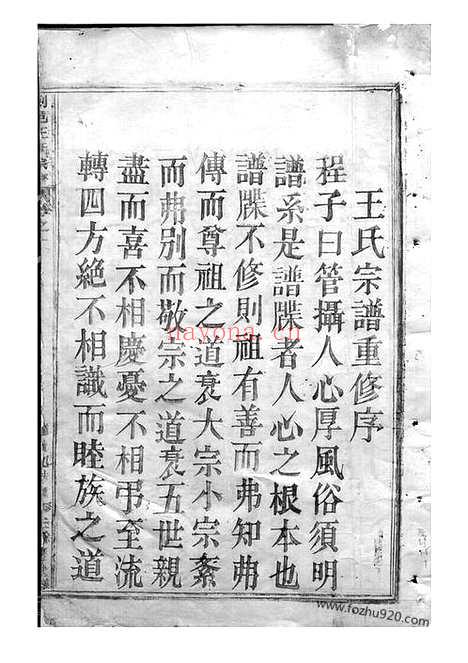 王氏宗譜重修序
程子曰管攝人心厚風俗須明
譜系是譜牒者人心之根本也
譜牒不修則祖有善而弗知弗
傳而尊祖之道衰大宗小宗紊
而弗別而敬宗之道衰五世親
盡而喜不相慶憂不相弔至流
轉四方絶不相識而睦族之道
nayona.cn
www.fozhu920.com